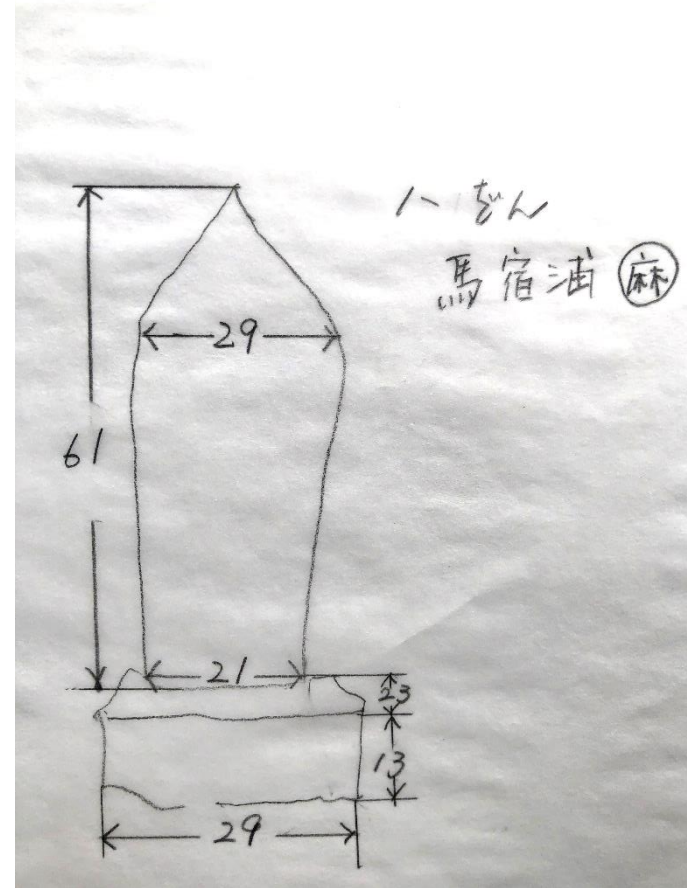 馬宿浦 麻
29
61
21
23
13
29